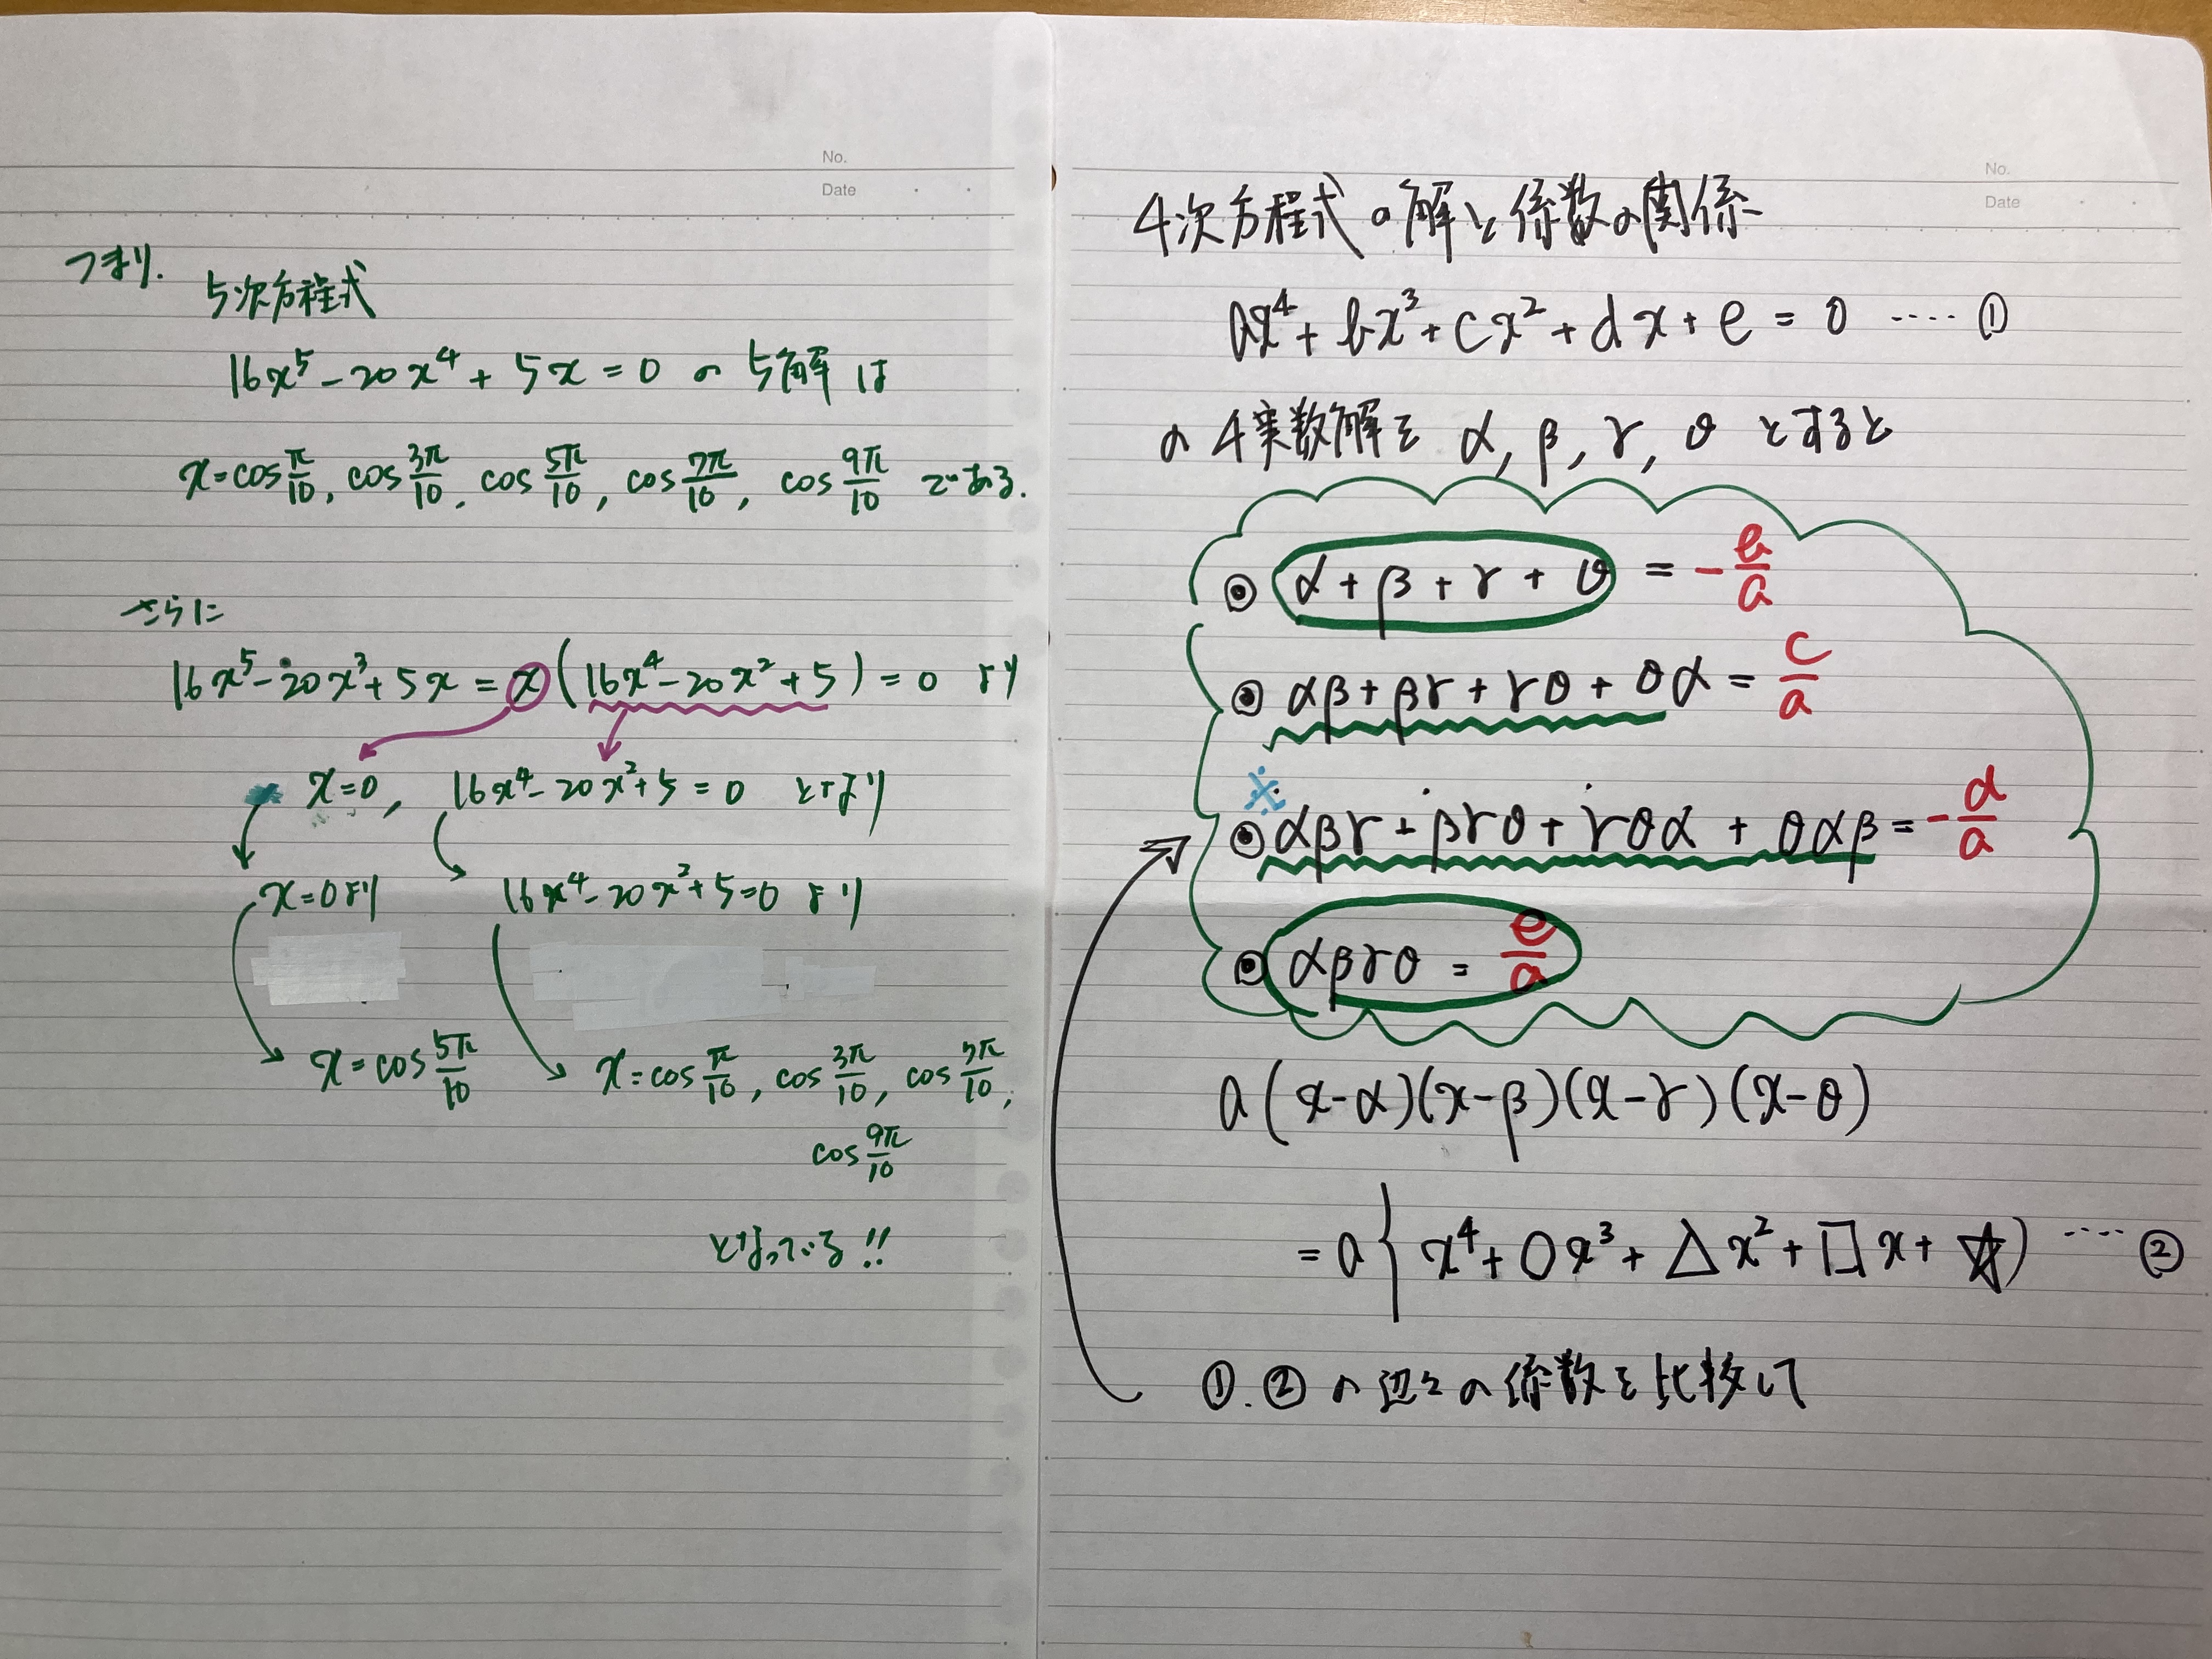 No.
Date
つまり.
5次方程式
16x⁵-20x⁴+5x=0 の 5解は
x=cos π/10, cos 3π/10, cos 5π/10, cos 7π/10, cos 9π/10 である.
さらに
16x⁵-20x³+5x = x(16x⁴-20x²+5)=0 より
x=0, 16x⁴-20x²+5=0 となり
x=0より 16x⁴-20x²+5=0 より
x=cos 5π/10 x=cos π/10, cos 3π/10, cos 7π/10,
cos 9π/10
となっている!!
No.
Date
4次方程式の解と係数の関係
ax⁴+bx³+cx²+dx+e=0 ‥‥ ①
の4実数解を α, β, γ, θ とすると
◉ α+β+γ+θ = -b/a
◉ αβ+βγ+γθ+θα = c/a
※
◉ αβγ+βγθ+γθα+θαβ = -d/a
◉ αβγθ = e/a
a(x-α)(x-β)(x-γ)(x-θ)
= a{x⁴+○x³+△x²+□x+☆) ‥‥ ②
①.②の辺々の係数を比較して